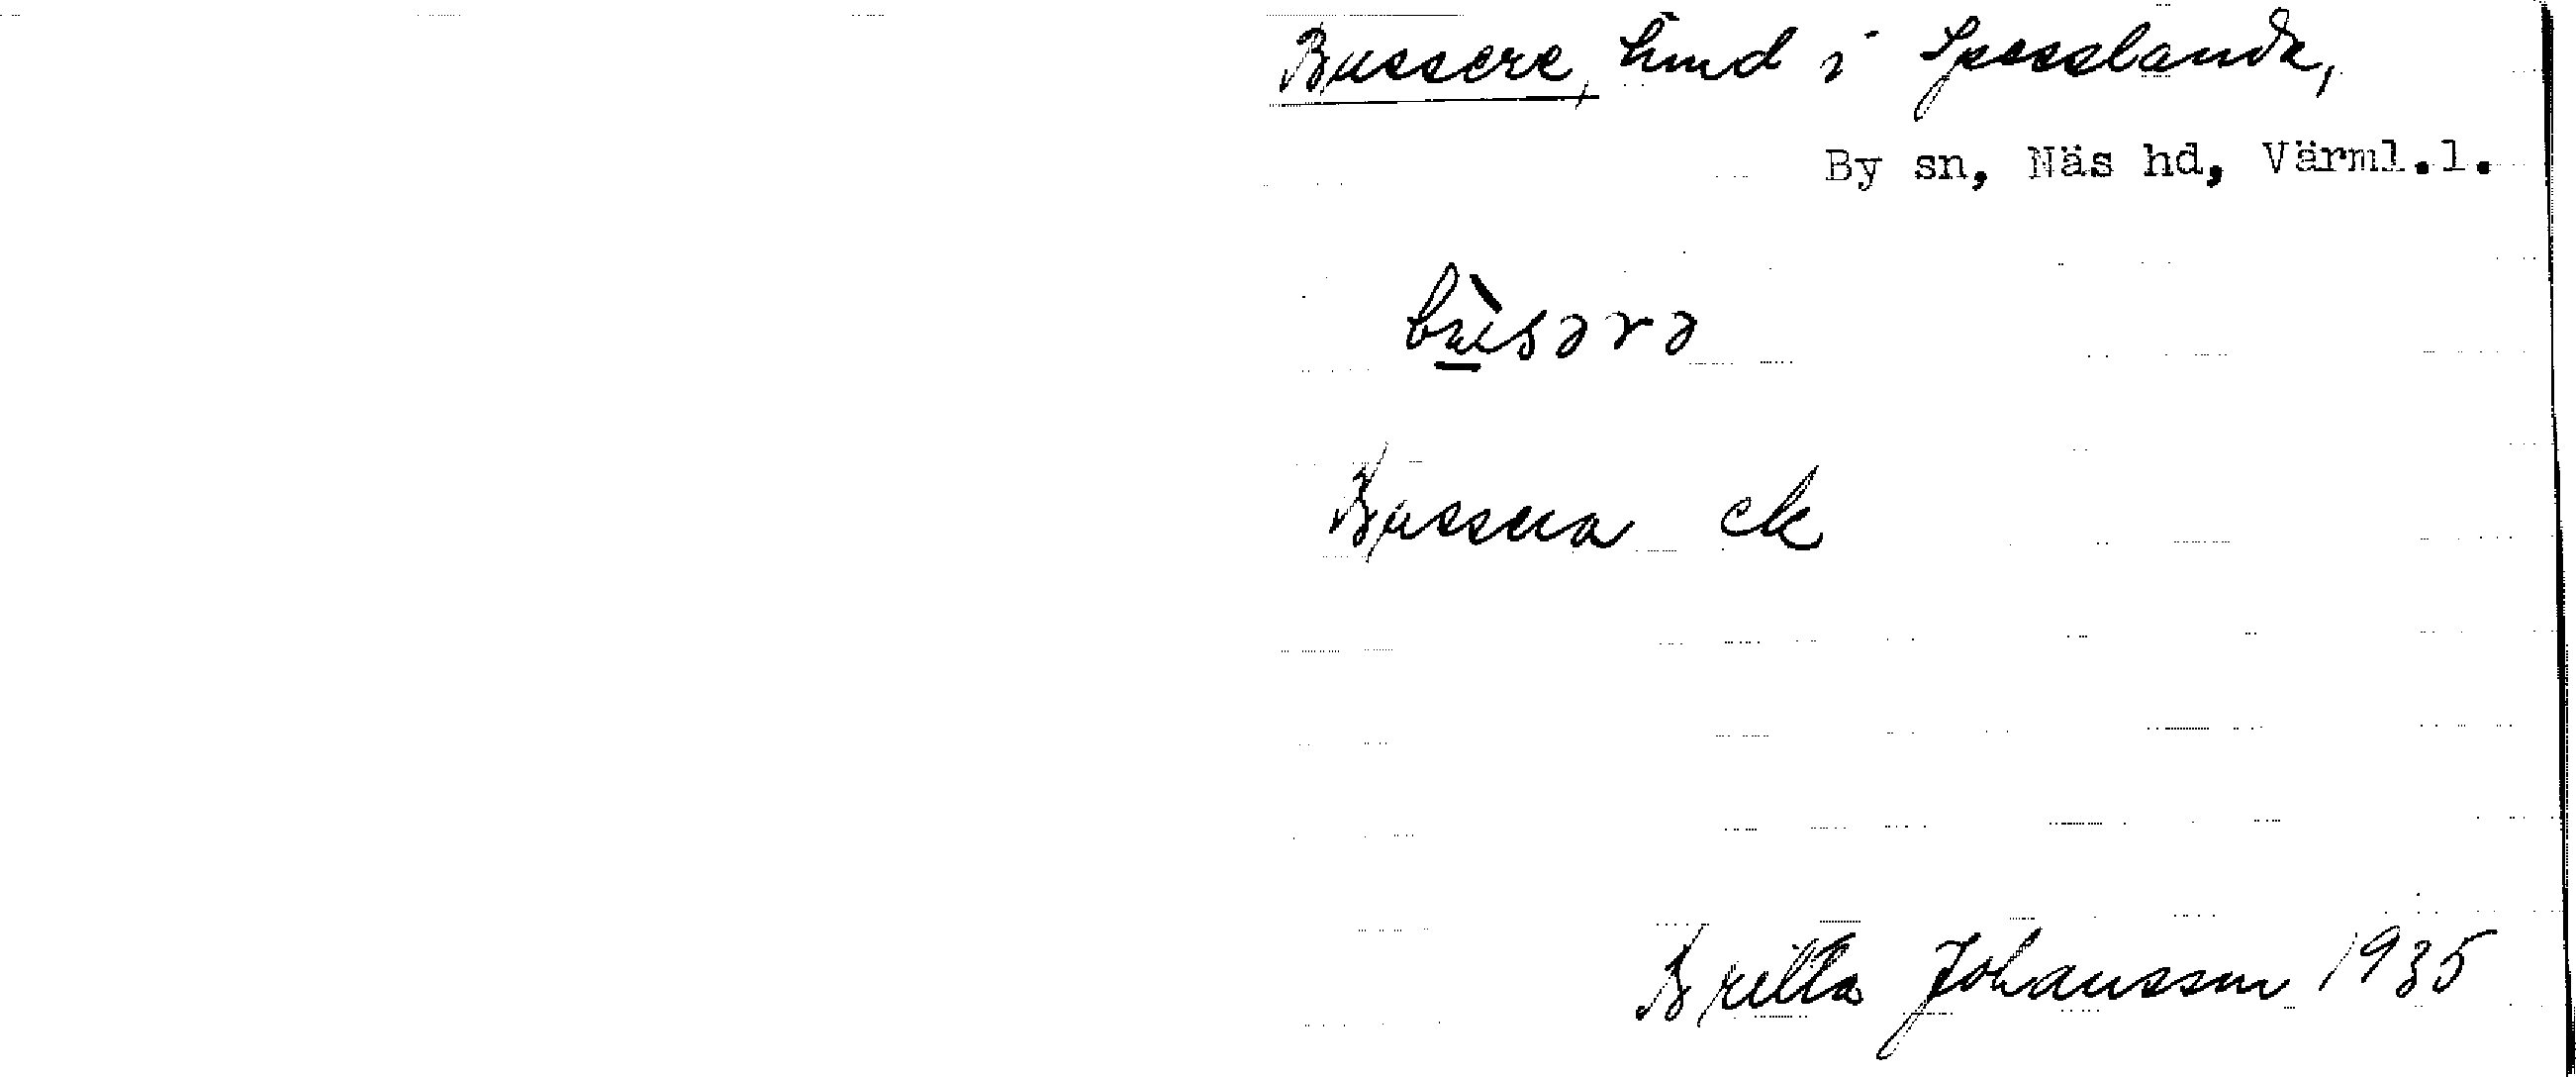 Bussere, lind i Spesslanda,
By sn, Näs hd, Värml.l.
bùsərə
Bussera ek
Britta Johansson 1935